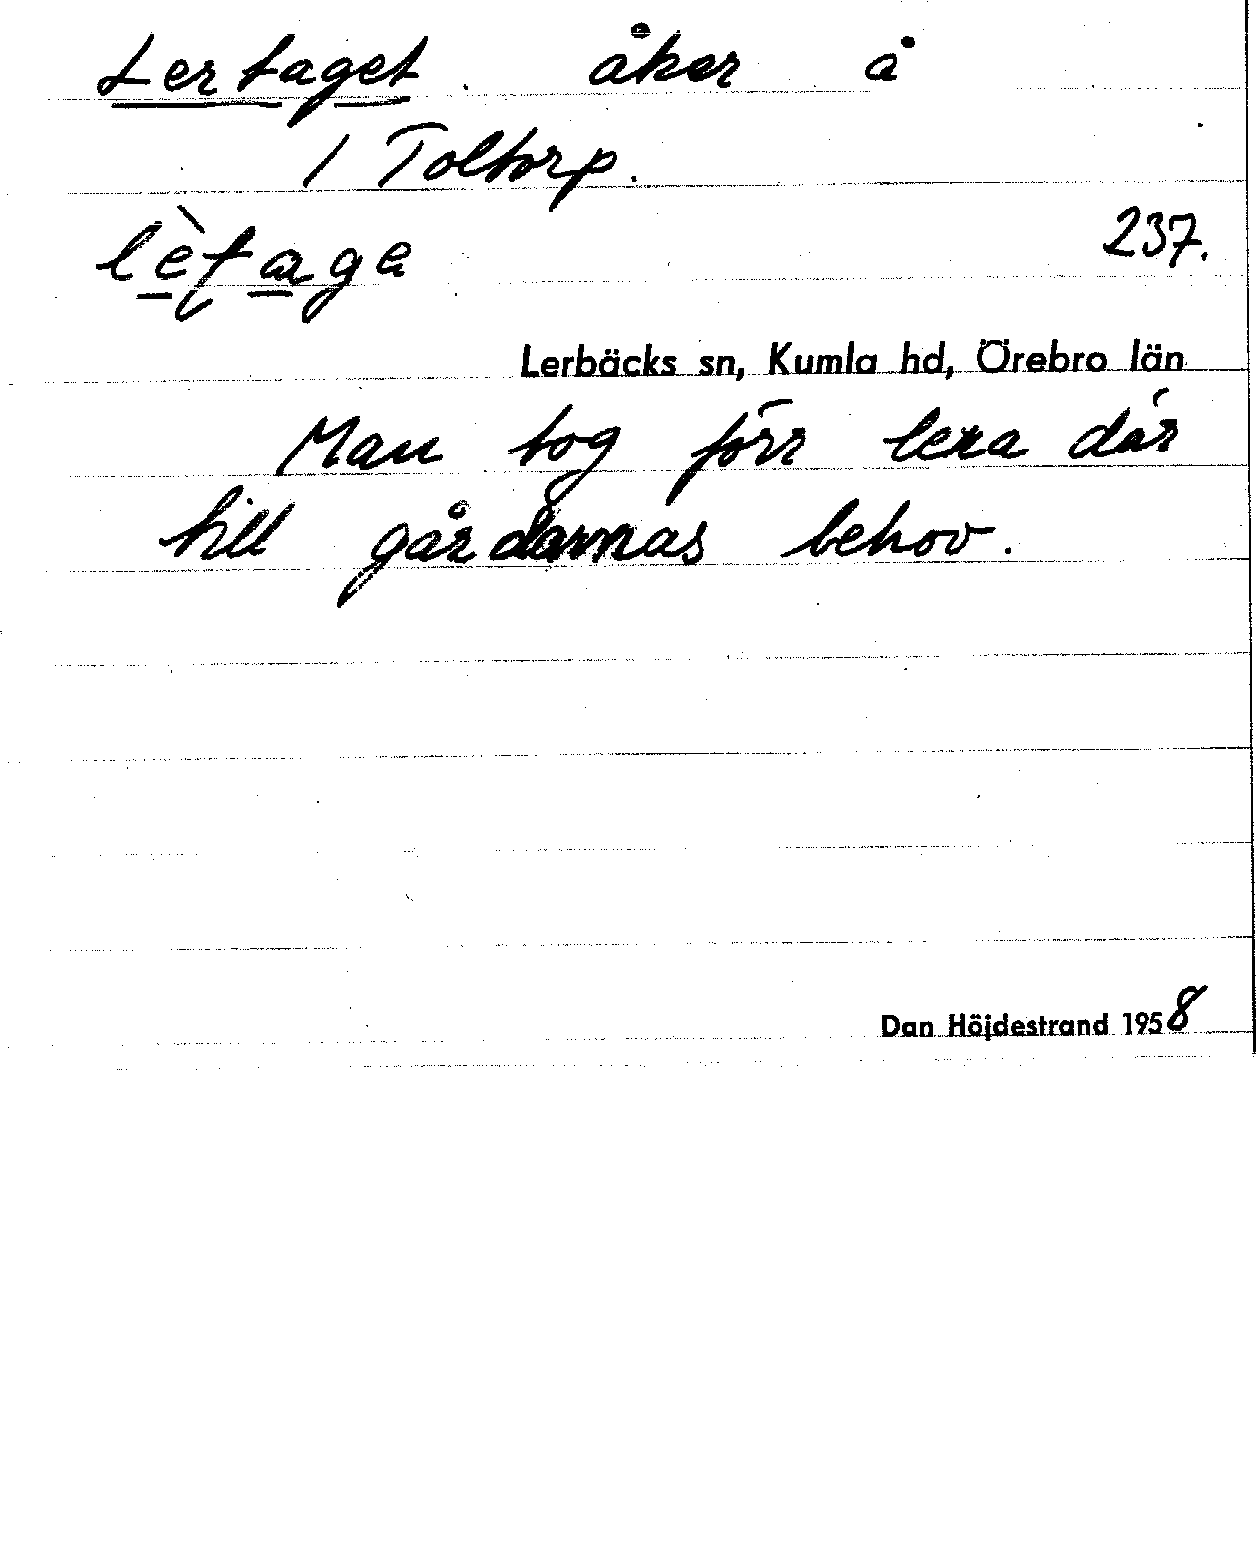 Lertaget. åker å
1 Toltorp.
lèṭage
237.
Lerbäcks sn, Kumla hd, Örebro län
Man tog förr lera där
till gårdarnas behov.
Dan Höjdestrand 1958